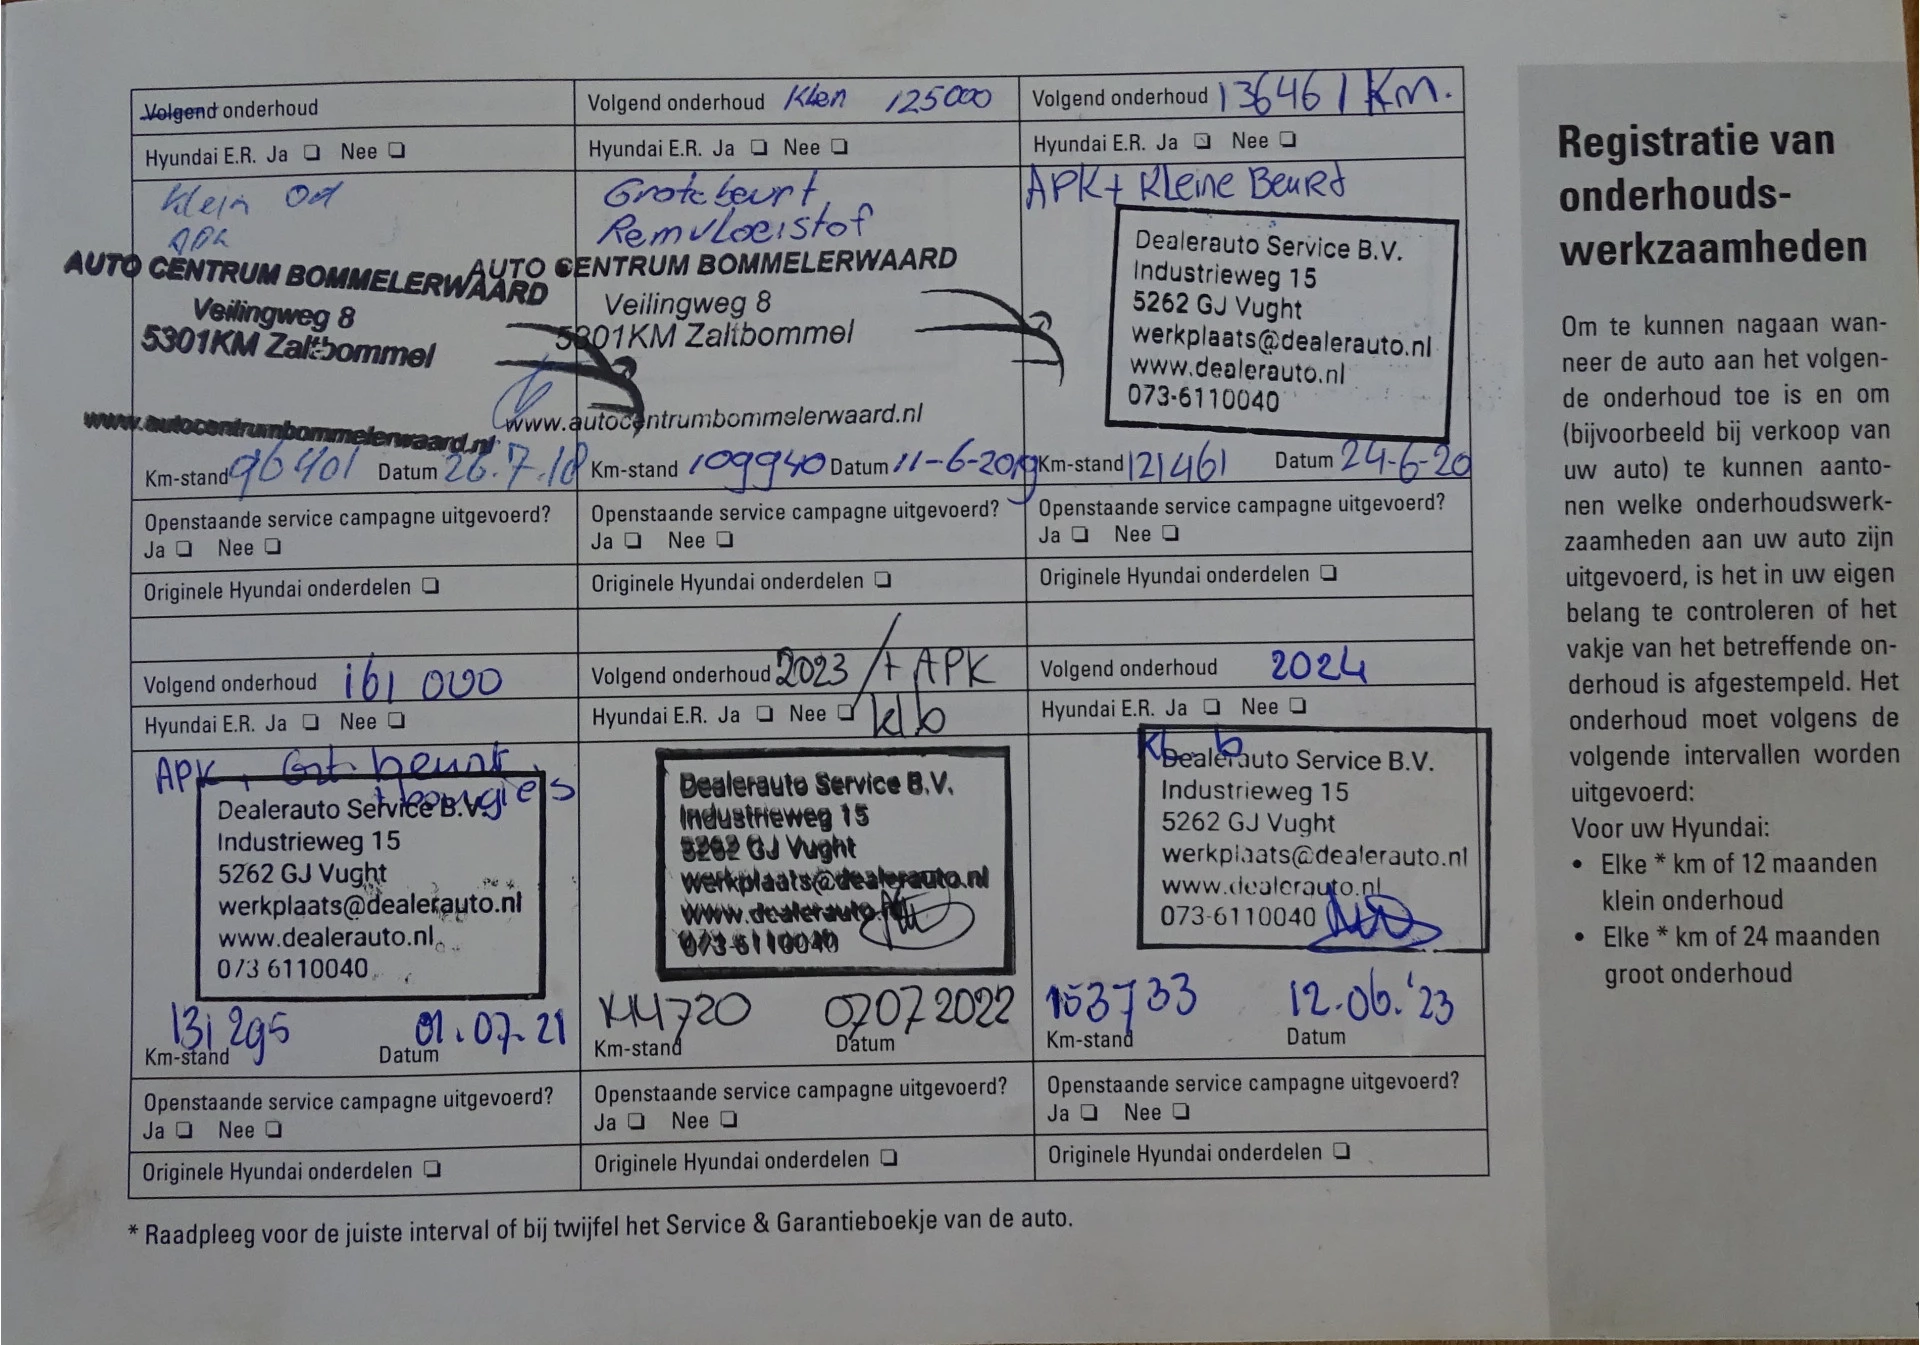 Volgend onderhoud
Hyundai E.R. Ja Nee
Klein Od
APK
AUTO CENTRUM BOMMELERWAARD
Veilingweg 8
5301KM Zaltbommel
www.autocentrumbommelerwaard.nl
Km-stand 96401 Datum 26.7.18
Openstaande service campagne uitgevoerd?
Ja Nee
Originele Hyundai onderdelen
Volgend onderhoud Klein 125000
Hyundai E.R. Ja Nee
Grote beurt
Remvloeistof
AUTO CENTRUM BOMMELERWAARD
Veilingweg 8
5301KM Zaltbommel
www.autocentrumbommelerwaard.nl
Km-stand 109940 Datum 11-6-2019
Openstaande service campagne uitgevoerd?
Ja Nee
Originele Hyundai onderdelen
Volgend onderhoud 136461 Km.
Hyundai E.R. Ja Nee
APK + Kleine Beurt
Dealerauto Service B.V.
Industrieweg 15
5262 GJ Vught
werkplaats@dealerauto.nl
www.dealerauto.nl
073-6110040
Km-stand 121461 Datum 24-6-20
Openstaande service campagne uitgevoerd?
Ja Nee
Originele Hyundai onderdelen
Volgend onderhoud 161 000
Hyundai E.R. Ja Nee
APK + Grt beurt
Dealerauto Service B.V.
Industrieweg 15
5262 GJ Vught
werkplaats@dealerauto.nl
www.dealerauto.nl
073 6110040
131295 01.07.21
Km-stand Datum
Openstaande service campagne uitgevoerd?
Ja Nee
Originele Hyundai onderdelen
Volgend onderhoud 2023 / + APK
Hyundai E.R. Ja Nee klb
Dealerauto Service B.V.
Industrieweg 15
5262 GJ Vught
werkplaats@dealerauto.nl
www.dealerauto.nl
073-6110040
144720 07072022
Km-stand Datum
Openstaande service campagne uitgevoerd?
Ja Nee
Originele Hyundai onderdelen
Volgend onderhoud 2024
Hyundai E.R. Ja Nee
Dealerauto Service B.V.
Industrieweg 15
5262 GJ Vught
werkplaats@dealerauto.nl
www.dealerauto.nl
073-6110040
153733 12.06.'23
Km-stand Datum
Openstaande service campagne uitgevoerd?
Ja Nee
Originele Hyundai onderdelen
* Raadpleeg voor de juiste interval of bij twijfel het Service & Garantieboekje van de auto.
Registratie van
onderhouds-
werkzaamheden
Om te kunnen nagaan wan-
neer de auto aan het volgen-
de onderhoud toe is en om
(bijvoorbeeld bij verkoop van
uw auto) te kunnen aanto-
nen welke onderhoudswerk-
zaamheden aan uw auto zijn
uitgevoerd, is het in uw eigen
belang te controleren of het
vakje van het betreffende on-
derhoud is afgestempeld. Het
onderhoud moet volgens de
volgende intervallen worden
uitgevoerd:
Voor uw Hyundai:
• Elke * km of 12 maanden
klein onderhoud
• Elke * km of 24 maanden
groot onderhoud